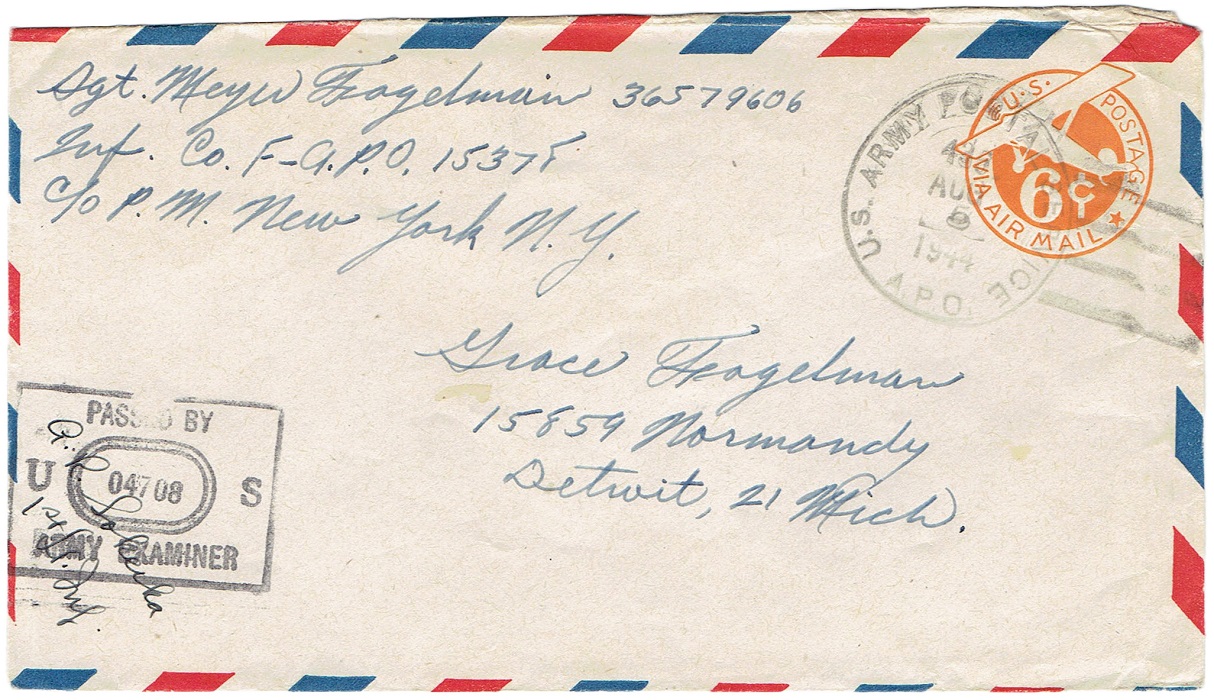 Sgt. Meyer Fogelman 36579606
Inf. Co. F-A.P.O. 15375
c/o P.M. New York N.Y.
U.S. ARMY POSTAL
AUG
1944
A.P.O.
U.S. POSTAGE
6¢
VIA AIR MAIL
Grace Fogelman
15859 Normandy
Detroit, 21 Mich.
PASSED BY
U 04708 S
ARMY EXAMINER
1st Lt. Inf.